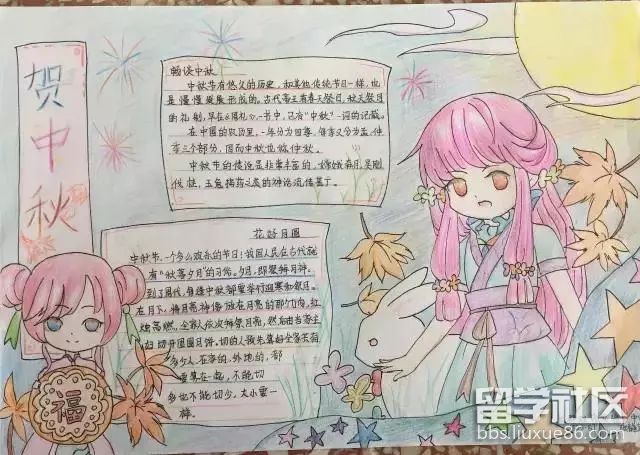 贺中秋
畅谈中秋
中秋节有悠久的历史，和其他传统节日一样，也
是慢慢发展形成的。古代帝王有春天祭日，秋天祭月
的礼制，早在《周礼》一书中，已有“中秋”一词的记载。
在中国的农历里，一年分为四季，每季又分为孟、仲、
季三个部分，因而中秋也称仲秋。
中秋节的传说是非常丰富的，嫦娥奔月，吴刚
伐桂，玉兔捣药之类的神话流传甚广。
花好月圆
中秋节，一个多么欢乐的节日！我国人民在古代就
有“秋暮夕月”的习俗。夕月，即祭拜月神。
到了周代，每逢中秋都要举行迎寒和祭月。
在月下，将月亮神像放在月亮的那个方向，红
烛高燃，全家人依次拜祭月亮，然后由当家主
妇切开团圆月饼。切的人预先算好全家共有
多少人，在家的，外地的，都
要算在一起，不能切
多也不能切少，大小要一
样。
福
留学社区
bbs.liuxue86.com